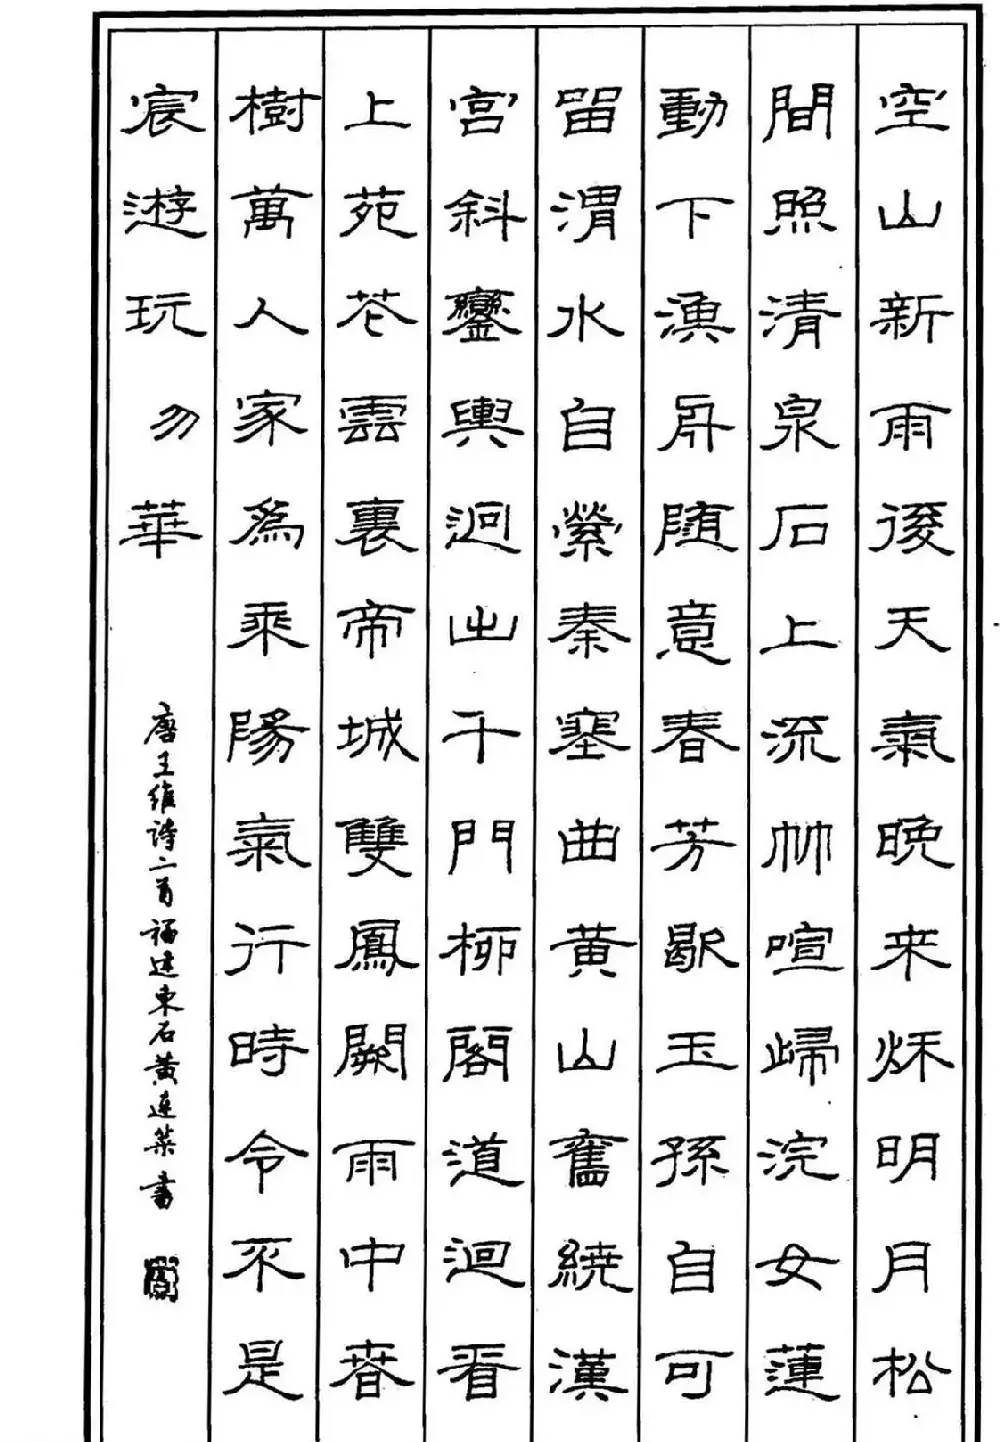 空山新雨後天氣晚来秌明月松
間照清泉石上流竹喧歸浣女蓮
動下漁舟随意春芳歇玉孫自可
留渭水自縈秦塞曲黄山舊繞漢
宫斜鑾輿迥出千門柳閣道迴看
上苑花雲裏帝城雙鳳闕雨中春
樹萬人家為乘陽氣行時令不是
宸遊玩勿華
唐王維詩二首福建東石黄連菜書